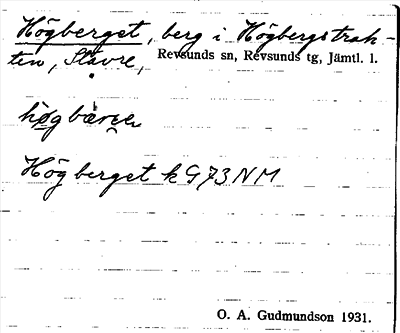 Högberget, berg i Högbergstrak-
ten, Stavre, Revsunds sn, Revsunds tg, Jämtl. l.
Högberget k G73 NM
O. A. Gudmundson 1931.